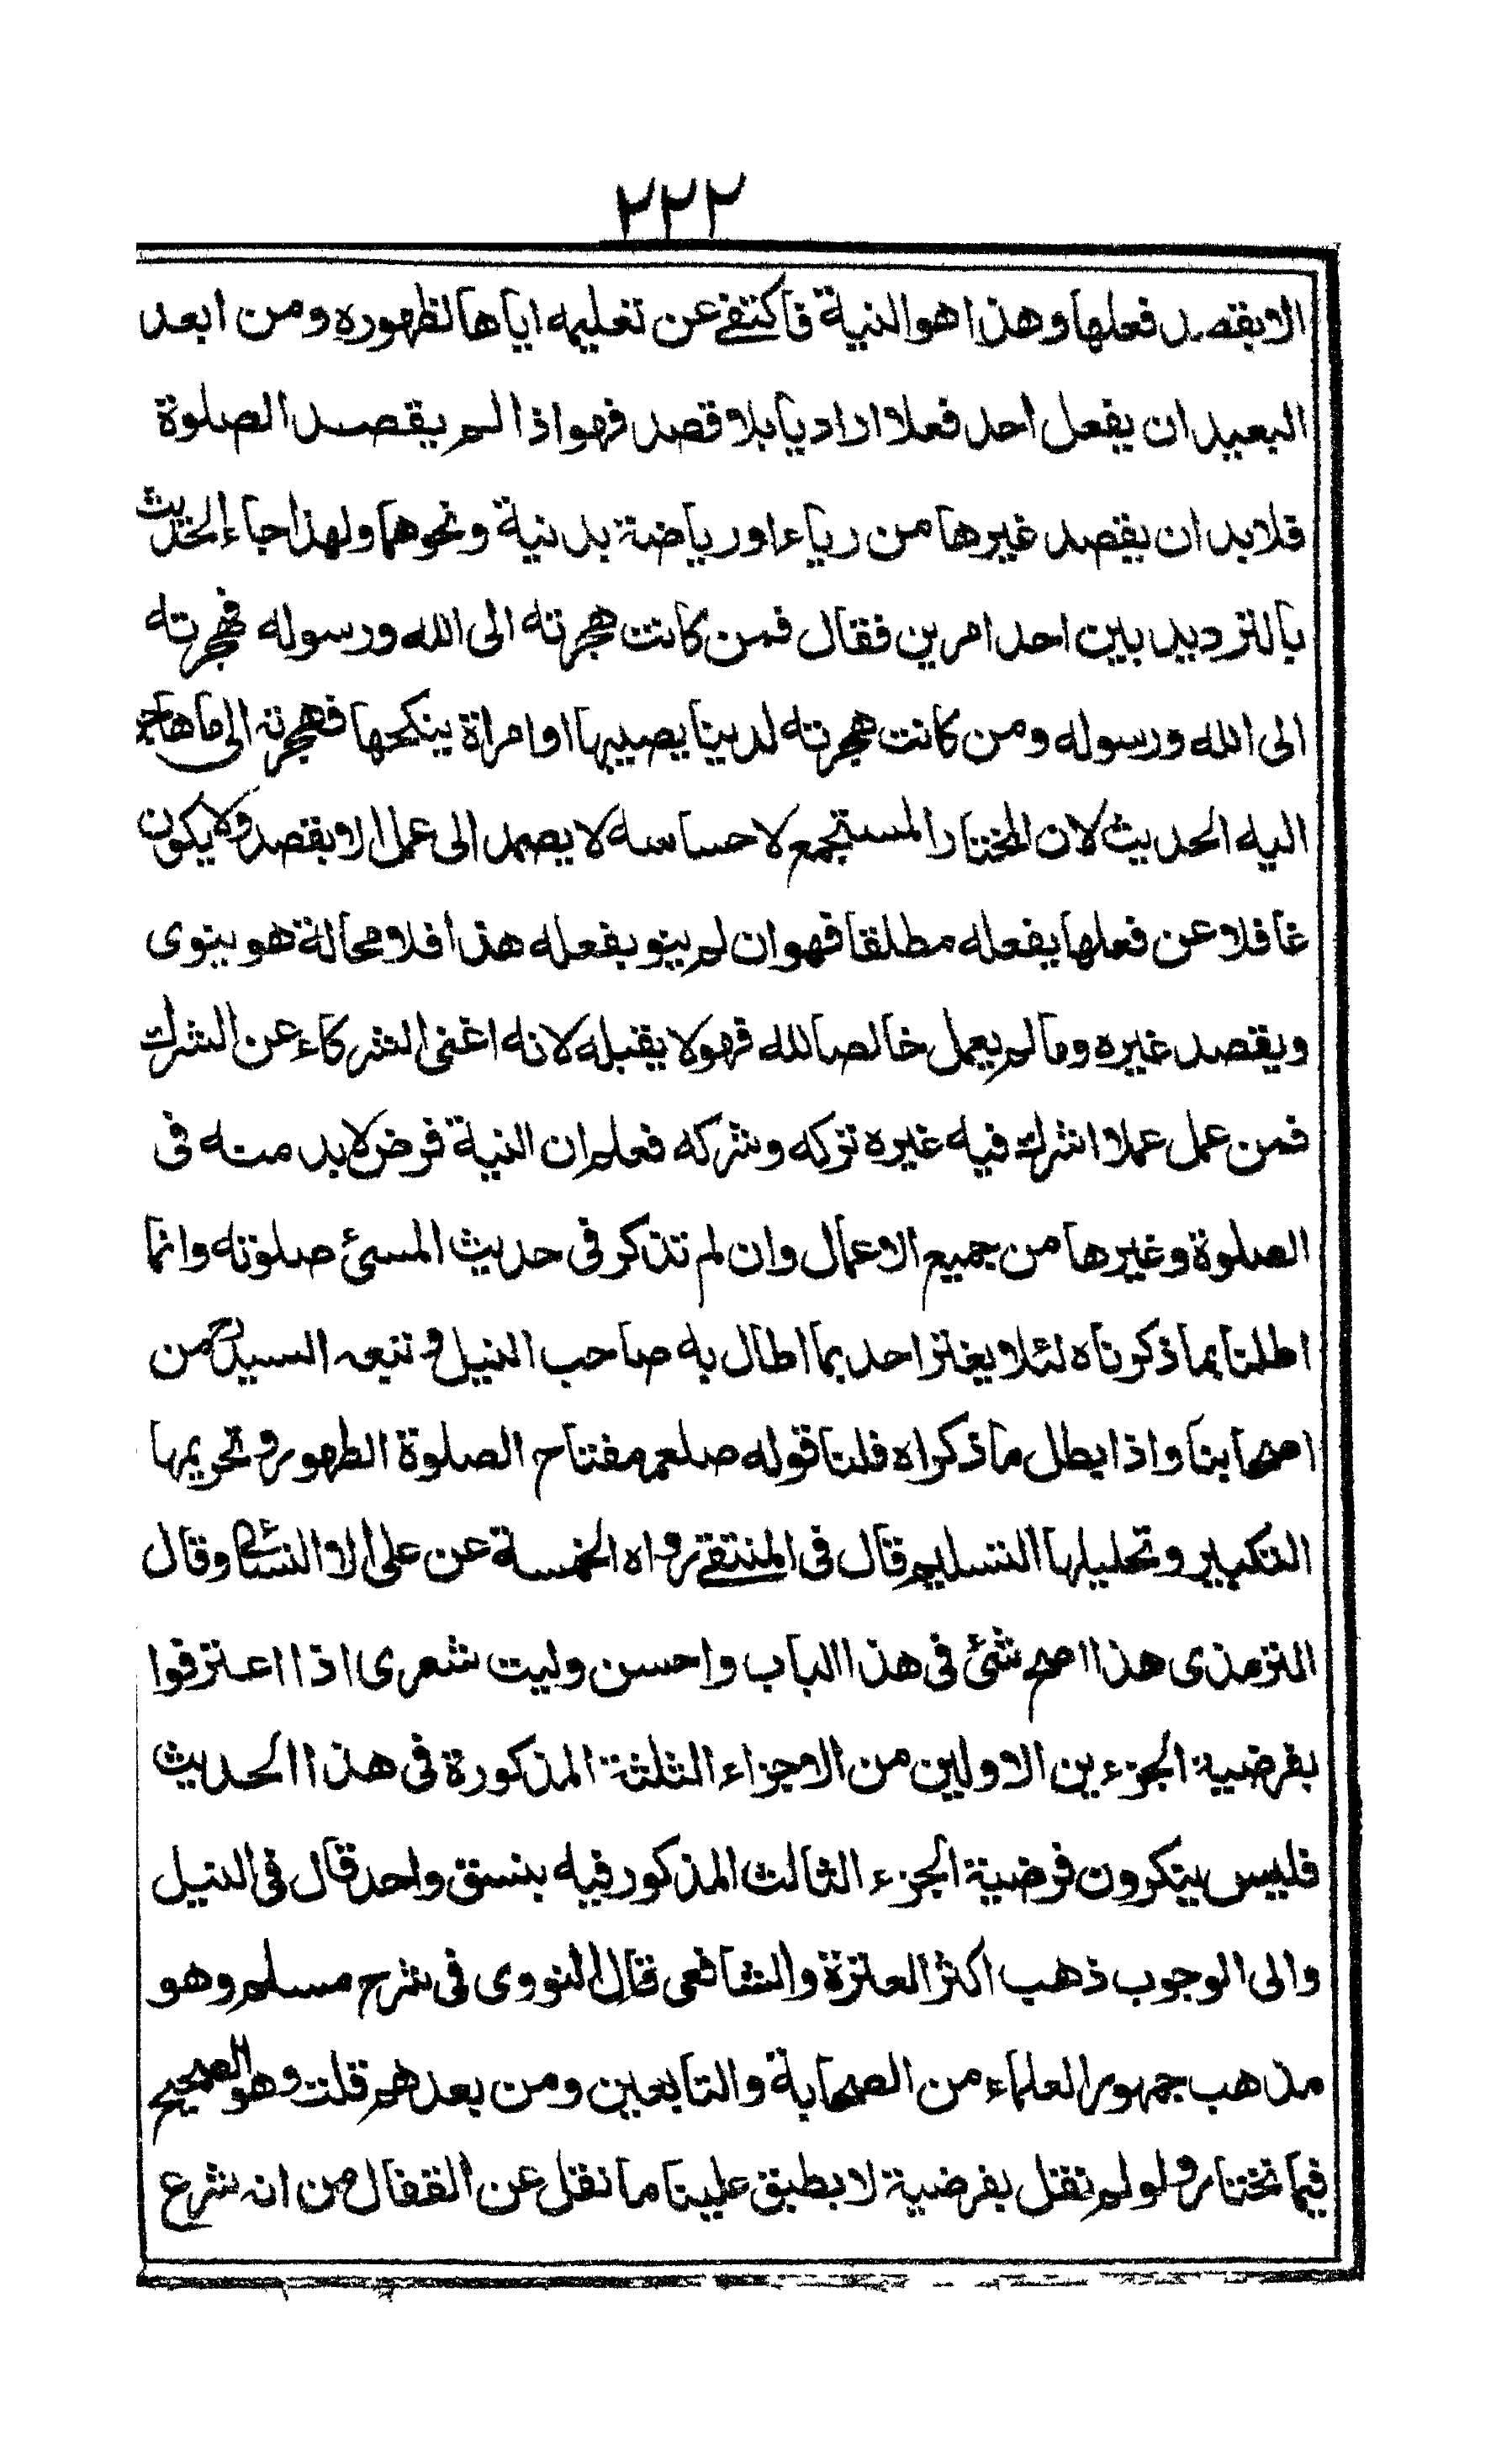 ٢٢٢
الا بقصد فعلها وهذا هو النية فاكتفے عن تعليمه اياها لظهوره ومن ابعد
البعيد ان يفعل احد فعلا اراديا بلا قصد فهو اذا لم يقصد الصلوة
فلا بد ان يقصد غيرها من رياء او رياضة بدنية ونحوهما ولهذا جاء الحديث
بالترديد بين احد امرين فقال فمن كانت هجرته الى الله ورسوله فهجرته
الى الله ورسوله ومن كانت هجرته لدينا يصيبها او امراة ينكحها فهجرته الى ما هاجر
اليه الحديث لان المختار المستجمع لاحساسه لا يصمد الى عمل الا بقصد ولا يكون
غافلا عن فعلها يفعله مطلقا فهو ان لم ينو بفعله هذا فلا محالة هو ينوى
ويقصد غيره وما لم يعمل خالصا لله فهو لا يقبله لانه اغنى الشركاء عن الشرك
فمن عمل عملا اشرك فيه غيره تركه وشركه فعلم ان النية فرض لا بد منه فى
الصلوة وغيرها من جميع الاعمال وان لم تذكر فى حديث المسئ صلوته وانما
اطلنا بما ذكرناه لئلا يغتر احد بما اطال به صاحب النيل وتبعه السيدؒ من
اصحابنا واذا بطل ما ذكراه قلنا قوله صلعم مفتاح الصلوة الطهور وتحريمها
التكبير وتحليلها التسليم قال فى المنتقے رواه الخمسة عن على الا النسائى وقال
الترمذى هذا اصح شئ فى هذا الباب واحسن وليت شعرى اذا اعترفوا
بفرضية الجزءين الاولين من الاجزاء الثلثة المذكورة فى هذا الحديث
فليس ينكرون فرضية الجزء الثالث المذكور فيه بنسق واحد قال فى النيل
والى الوجوب ذهب اكثر العترة والشافعى قال النووى فى شرح مسلم وهو
مذهب جمهور العلماء من الصحابة والتابعين ومن بعدهم قلت وهو الصحيح
فيما نختار ولو لم نقل بفرضية لا بطبق علينا ما نقل عن القفال من انه شرع